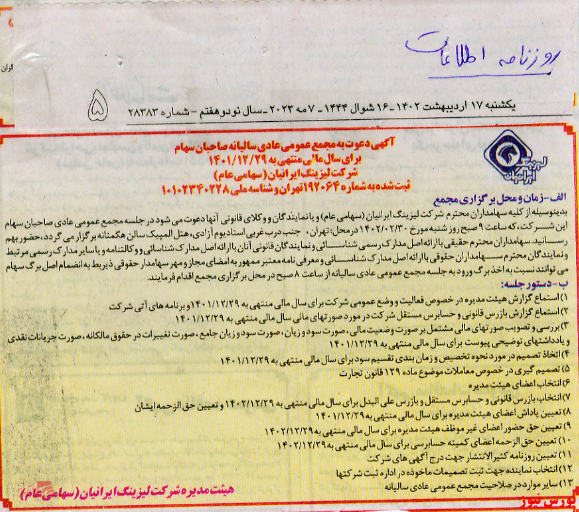 روزنامه اطلاعات
یکشنبه ۱۷ اردیبهشت ۱۴۰۲ - ۱۶ شوال ۱۴۴۴ - ۷ مه ۲۰۲۳ - سال نود و هفتم - شماره ۲۸۳۸۳
۵
گران
آگهی دعوت به مجمع عمومی عادی سالیانه صاحبان سهام
برای سال مالی منتهی به ۱۴۰۱/۱۲/۲۹
شرکت لیزینگ ایرانیان (سهامی عام)
ثبت شده به شماره ۱۹۲۰۶۴ تهران و شناسه ملی ۱۰۱۰۲۳۴۰۲۲۸
لیزینگ ایرانیان
الف- زمان و محل برگزاری مجمع
بدینوسیله از کلیه سهامداران محترم شرکت لیزینگ ایرانیان (سهامی عام) و یا نمایندگان و وکلای قانونی آنها دعوت می شود در جلسه مجمع عمومی عادی صاحبان سهام
این شرکت، که ساعت ۹ صبح روز شنبه مورخ ۱۴۰۲/۰۲/۳۰ در محل: تهران ، جنب درب غربی استادیوم آزادی، هتل المپیک سالن هگمتانه برگزار می گردد، حضور بهم
رسانید. سهامداران محترم حقیقی با ارائه اصل مدارک رسمی شناسائی و نمایندگان قانونی آنان با ارائه اصل مدارک شناسائی و وکالتنامه و یا سایر مدارک رسمی مرتبط
و نمایندگان محترم سهامداران حقوقی با ارائه اصل مدارک شناسائی و معرفی نامه معتبر ممهور به امضای مجاز و مهر سهامدار حقوقی ذیربط به انضمام اصل برگ سهام
می توانند نسبت به اخذ برگ ورود به جلسه مجمع عمومی عادی سالیانه از ساعت ۸ صبح در محل برگزاری مجمع اقدام فرمایند.
ب- دستور جلسه:
۱) استماع گزارش هیئت مدیره در خصوص فعالیت و وضع عمومی شرکت برای سال مالی منتهی به ۱۴۰۱/۱۲/۲۹ و برنامه های آتی شرکت
۲) استماع گزارش بازرس قانونی و حسابرس مستقل شرکت در مورد صورتهای مالی سال مالی منتهی به ۱۴۰۱/۱۲/۲۹
۳) بررسی و تصویب صورتهای مالی مشتمل بر صورت وضعیت مالی، صورت سود و زیان، صورت سود و زیان جامع، صورت تغییرات در حقوق مالکانه، صورت جریانات نقدی
و یادداشتهای توضیحی پیوست برای سال مالی منتهی به ۱۴۰۱/۱۲/۲۹
۴) اتخاذ تصمیم در مورد نحوه تخصیص و زمان بندی تقسیم سود برای سال مالی منتهی به ۱۴۰۱/۱۲/۲۹
۵) تصمیم گیری در خصوص معاملات موضوع ماده ۱۲۹ قانون تجارت
۶) انتخاب اعضای هیئت مدیره
۷) انتخاب بازرس قانونی و حسابرس مستقل و بازرس علی البدل برای سال مالی منتهی به ۱۴۰۲/۱۲/۲۹ و تعیین حق الزحمه ایشان
۸) تعیین پاداش اعضای هیئت مدیره برای سال مالی منتهی به ۱۴۰۱/۱۲/۲۹
۹) تعیین حق حضور اعضای غیر موظف هیئت مدیره برای سال مالی منتهی به ۱۴۰۲/۱۲/۲۹
۱۰) تعیین حق الزحمه اعضای کمیته حسابرسی برای سال مالی منتهی به ۱۴۰۲/۱۲/۲۹
۱۱) تعیین روزنامه کثیرالانتشار جهت درج آگهی های شرکت
۱۲) انتخاب نماینده جهت ثبت تصمیمات ماخوذه در اداره ثبت شرکتها
۱۳) سایر موارد در صلاحیت مجمع عمومی عادی سالیانه
هیئت مدیره شرکت لیزینگ ایرانیان (سهامی عام)
بورس نیوز